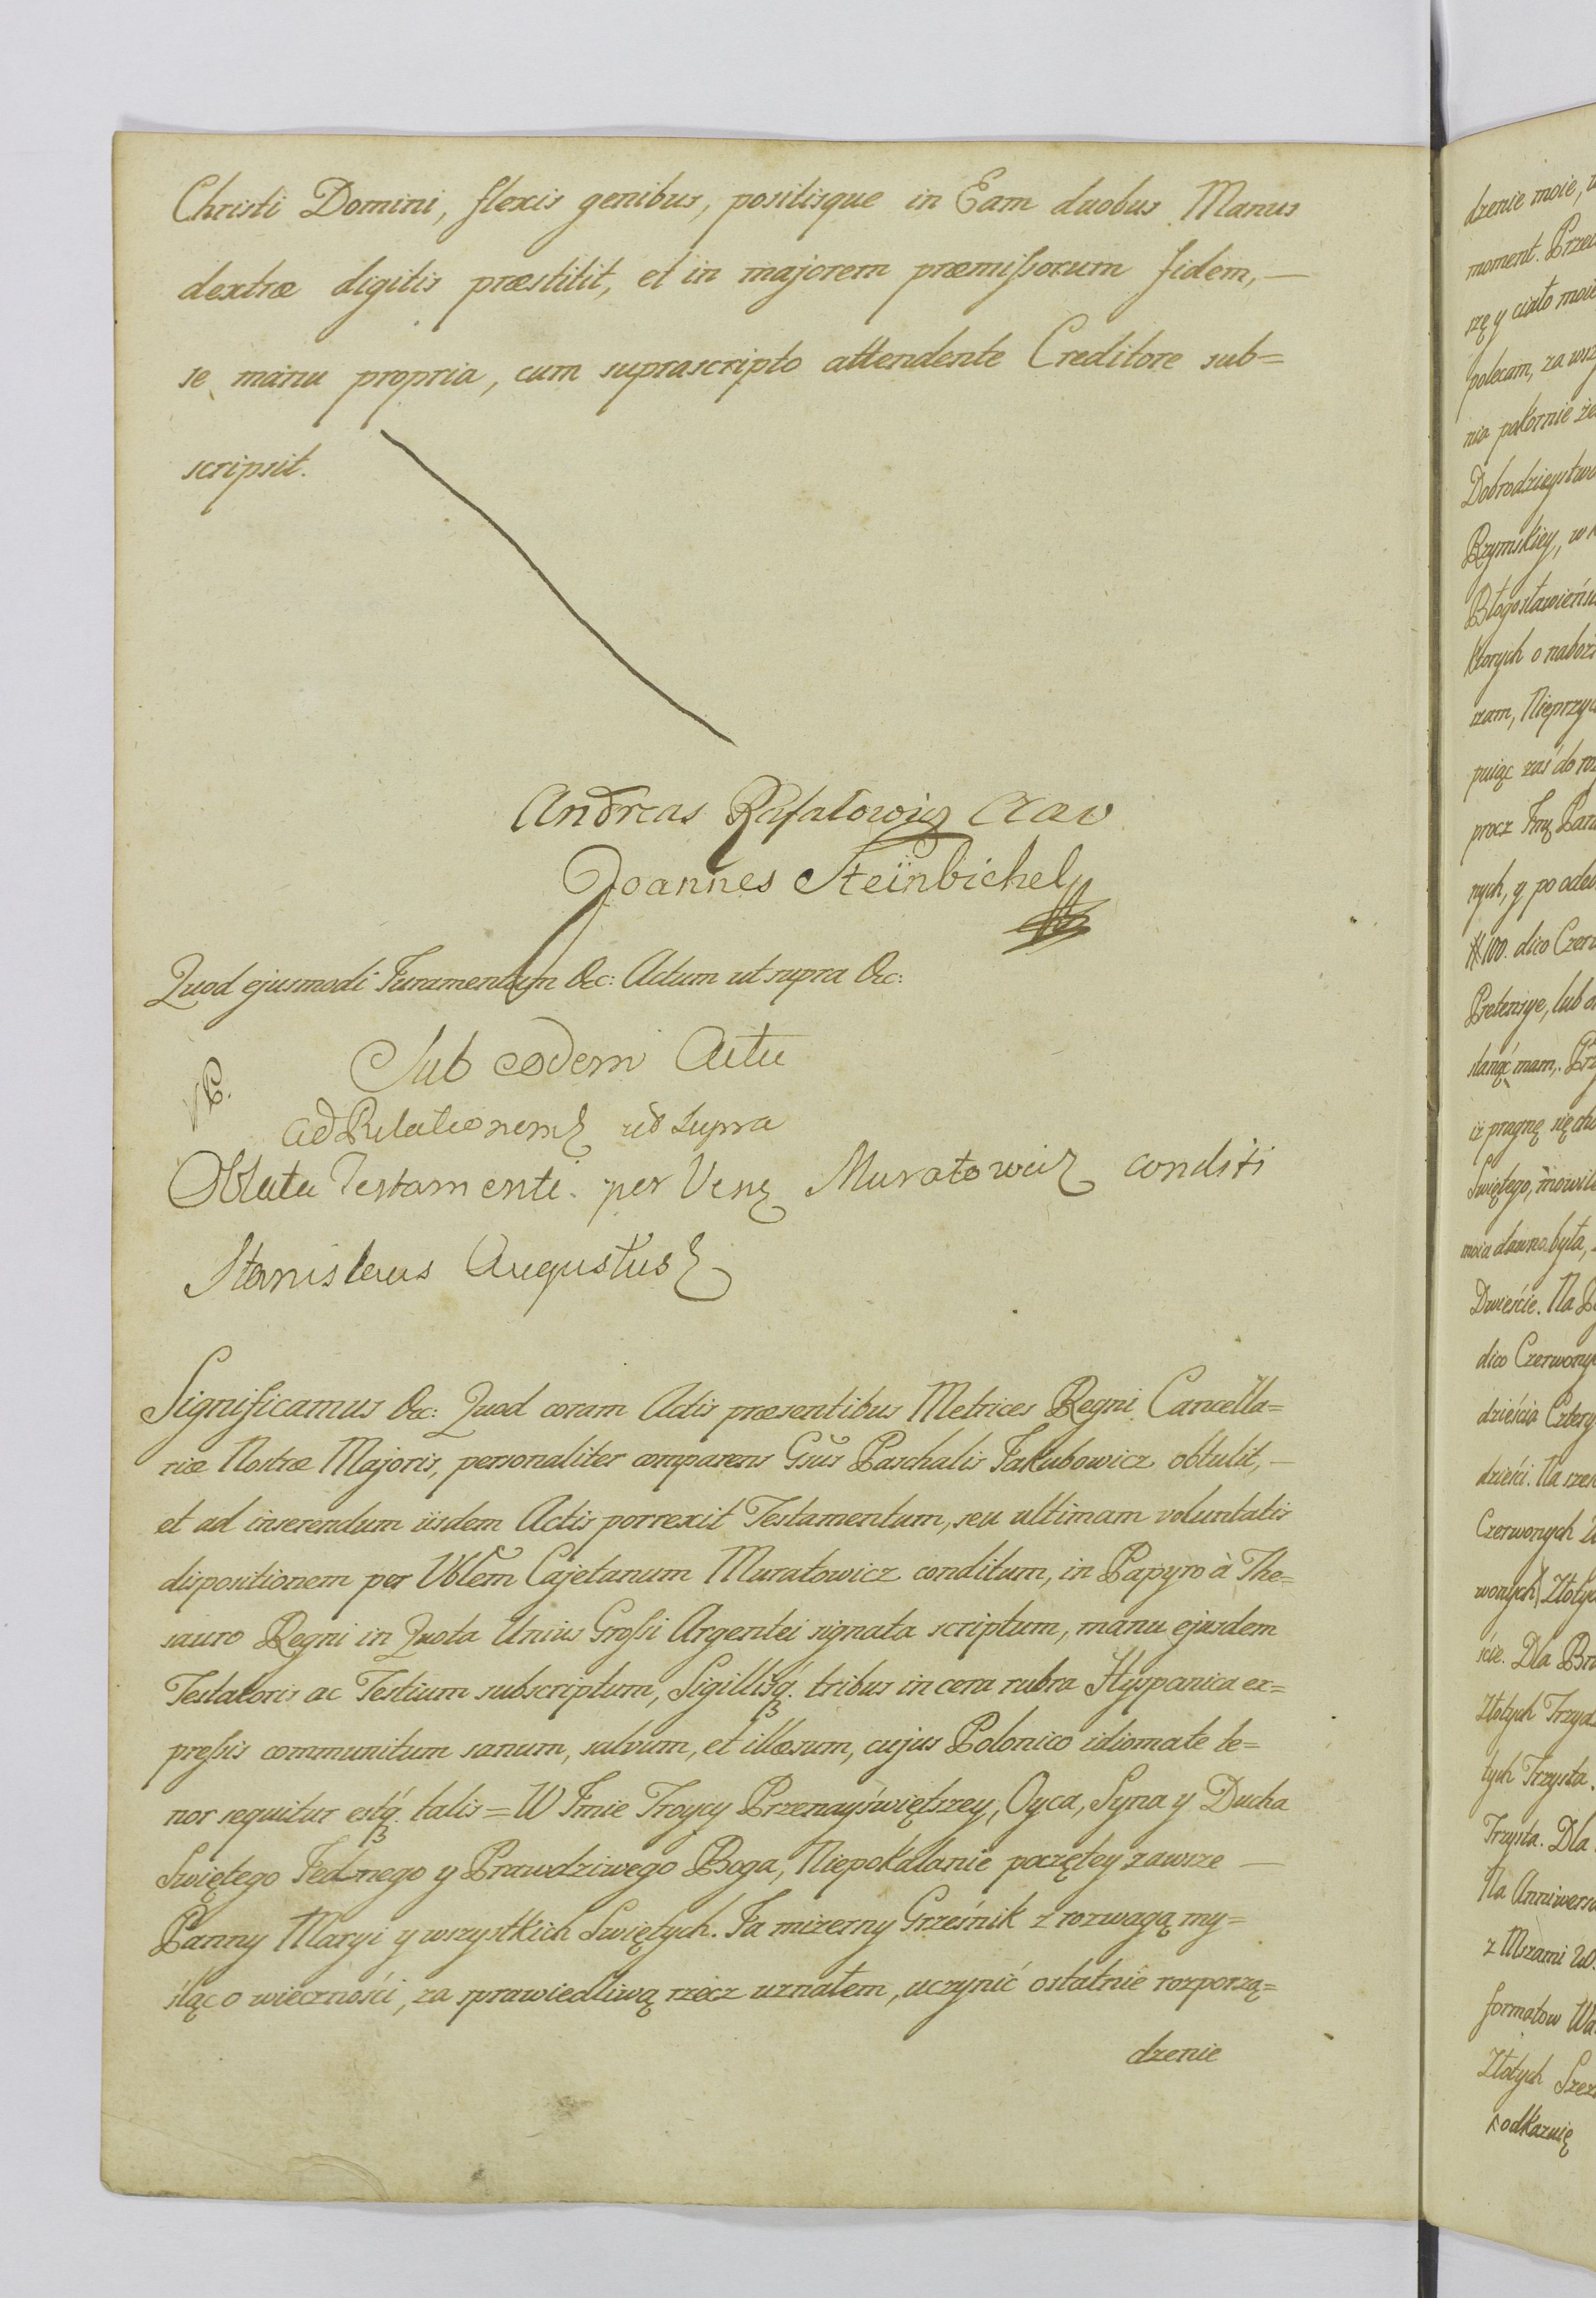 Christi Domini, flexis genibus, positisque in Eam duobus Manus
dextræ digitis præstitit, et in majorem præmissorum fidem, —
se manu propria, cum suprascripto attendente Creditore sub=
scripsit.
Andreas Rafałowicz
Joannes Steinbichel
Quod ejusmodi Juramentum &c: Actum ut supra &c:
Sub eodem Actu
ad Relationem ut supra
Oblata Testamenti per Vene Muratowicz conditi
Stanislaus Augustus
Significamus &c: Quod coram Actis præsentibus Metrices Regni Cancella=
riæ Nostræ Majoris, personaliter comparens Gsus Paschalis Jakubowicz obtulit, —
et ad inserendum iisdem Actis porrexit Testamentum, seu ultimam voluntatis
dispositionem per Vblem Cajetanum Muratowicz conditum, in Papyro à The=
sauro Regni in Quota Unius Grossi Argentei signata scriptum, manu ejusdem
Testatoris ac Testium subscriptum, Sigillisq. tribus in cera rubra Hyspanica ex=
pressis communitum sanum, salvum, et illæsum, cujus Polonico idiomate te=
nor sequitur estq. talis = W Imie Troycy Przenayświętszey, Oyca, Syna y Ducha
Swiętego Jednego y Prawdziwego Boga, Niepokalanie poczętey zawsze —
Panny Maryi y wszystkich Swiętych. Ja mizerny Grześnik z rozwagą my=
śląc o wieczności, za sprawiedliwą rzecz uznałem, uczynić ostatnie rozporzą=
dzenie
dzenie moie,
moment.
szę y ciało moie
polecam, za
nia pokornie
Rzymskiey, w
ktorych o
zam,
puiąc zaś do
procz
nych, y po
100. dico
Pretensye, lub
stanąć mam,
iż pragnę się
Swiętego,
moia dawno była,
Dwieście. Na
dico
dzieścia
dzieści. Na
Czerwonych
wonych
ście. Dla
Złotych
tych Trzysta
Trzysta. Dla
Na
z Mszami
formatow
Złotych
odkazuię